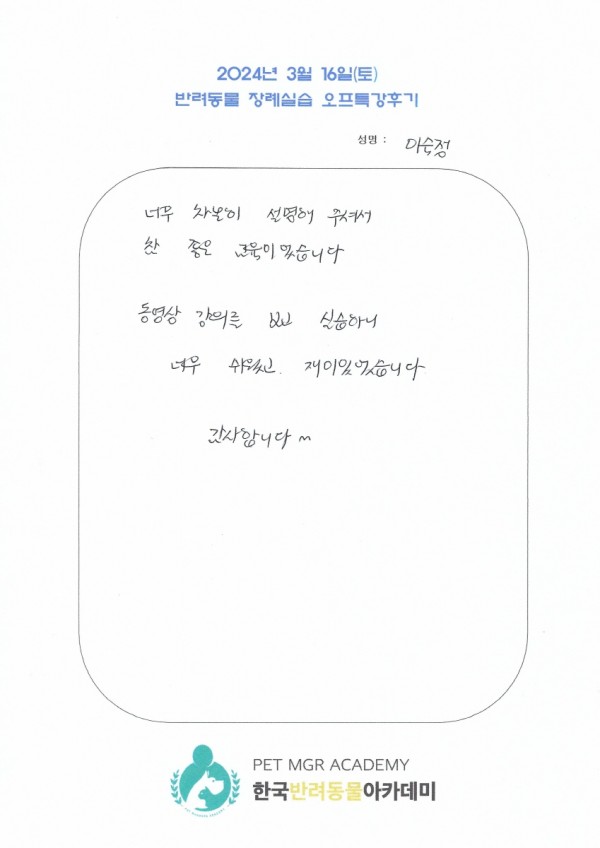 2024년 3월 16일(토)
반려동물 장례실습 오프특강후기
성명 : 이숙정
너무 차분히 설명해 주셔서
참 좋은 교육이었습니다
동영상 강의를 보고 실습하니
너무 쉬웠고. 재미있었습니다
감사합니다 ~
PET MGR ACADEMY
한국반려동물아카데미